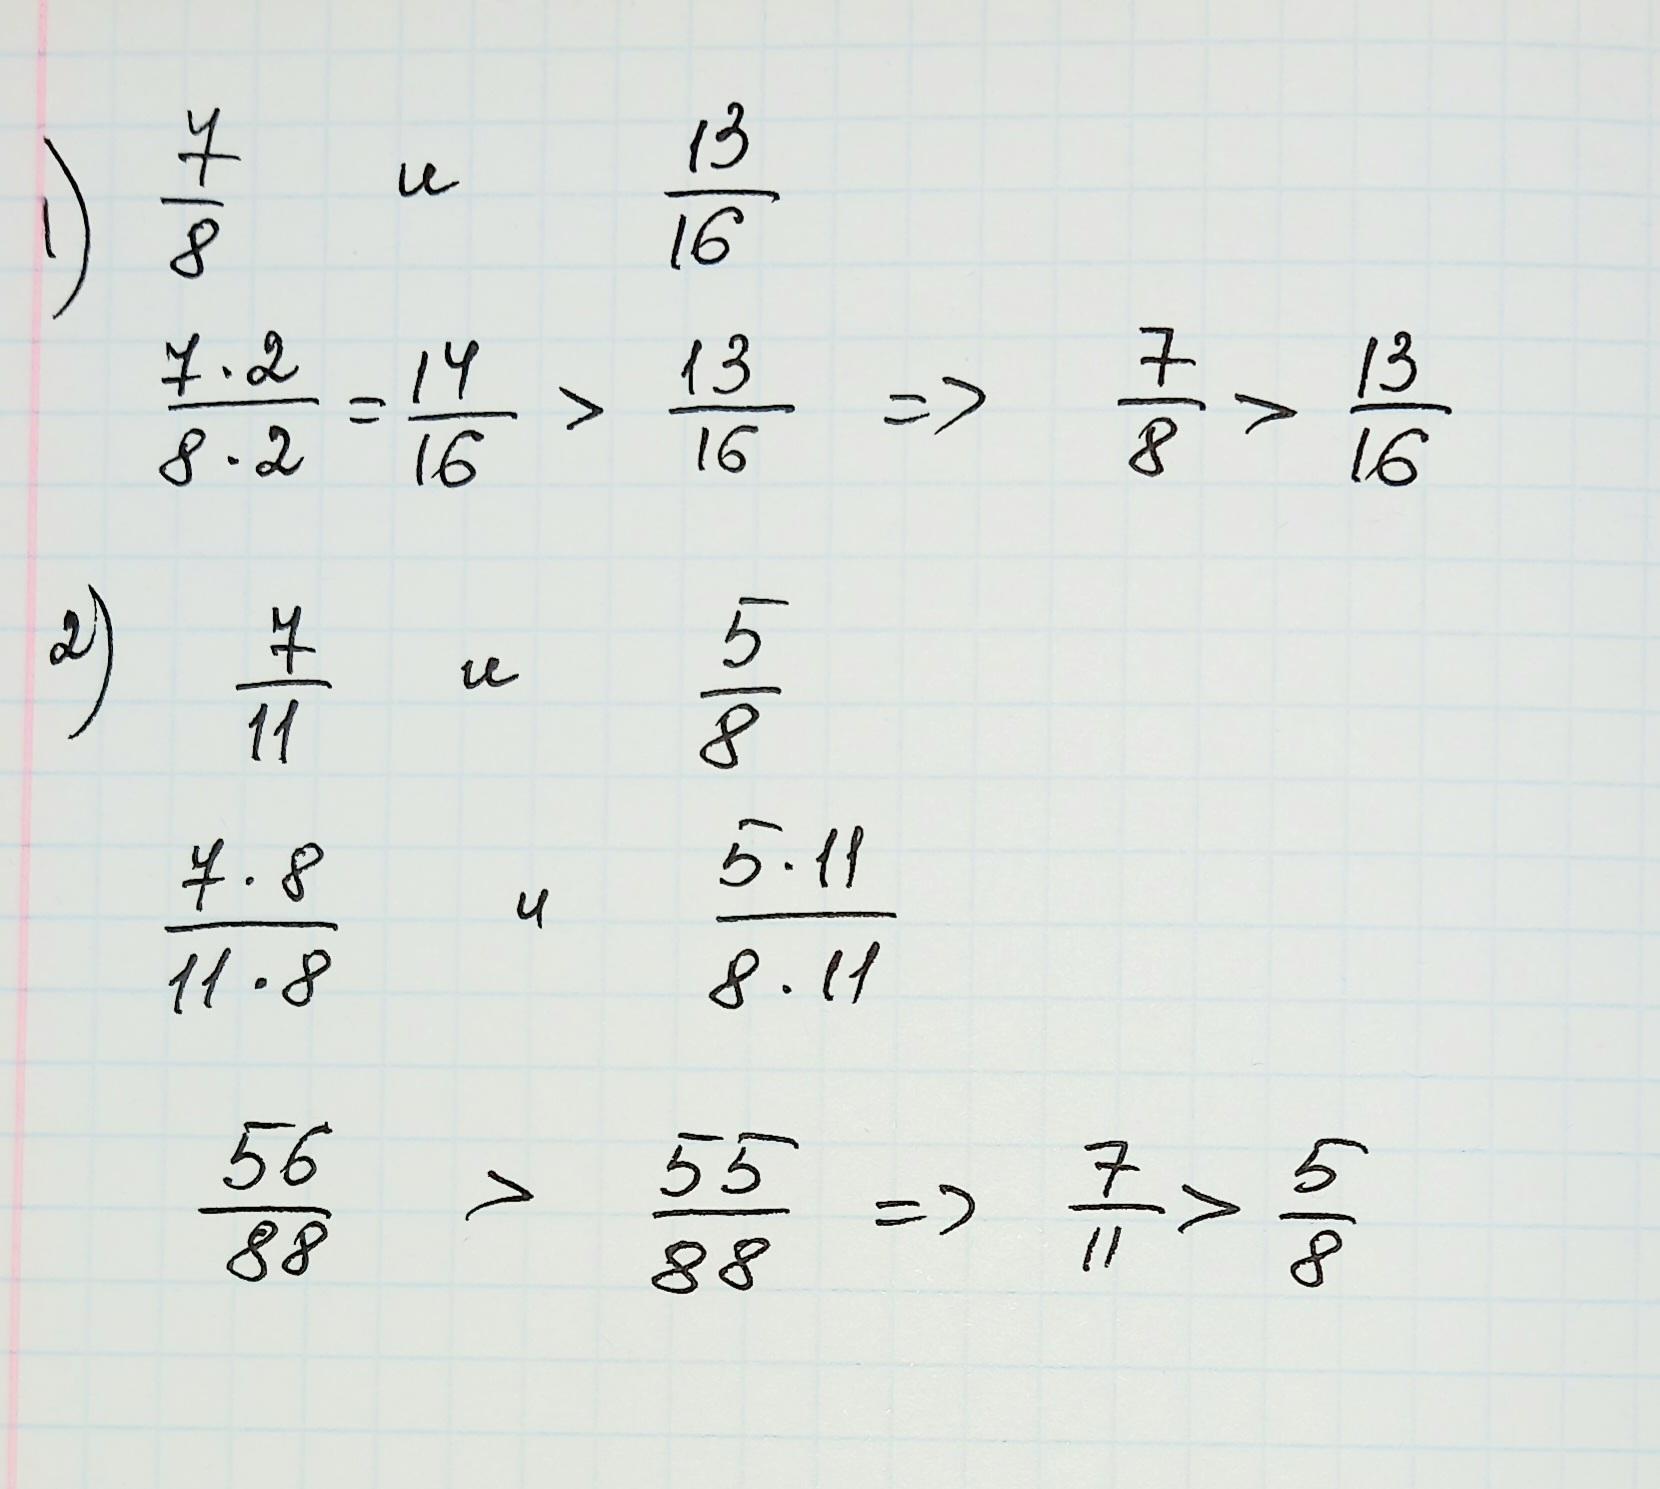 1) 7/8 и 13/16
7·2/8·2 = 14/16 > 13/16 => 7/8 > 13/16
2) 7/11 и 5/8
7·8/11·8 и 5·11/8·11
56/88 > 55/88 => 7/11 > 5/8